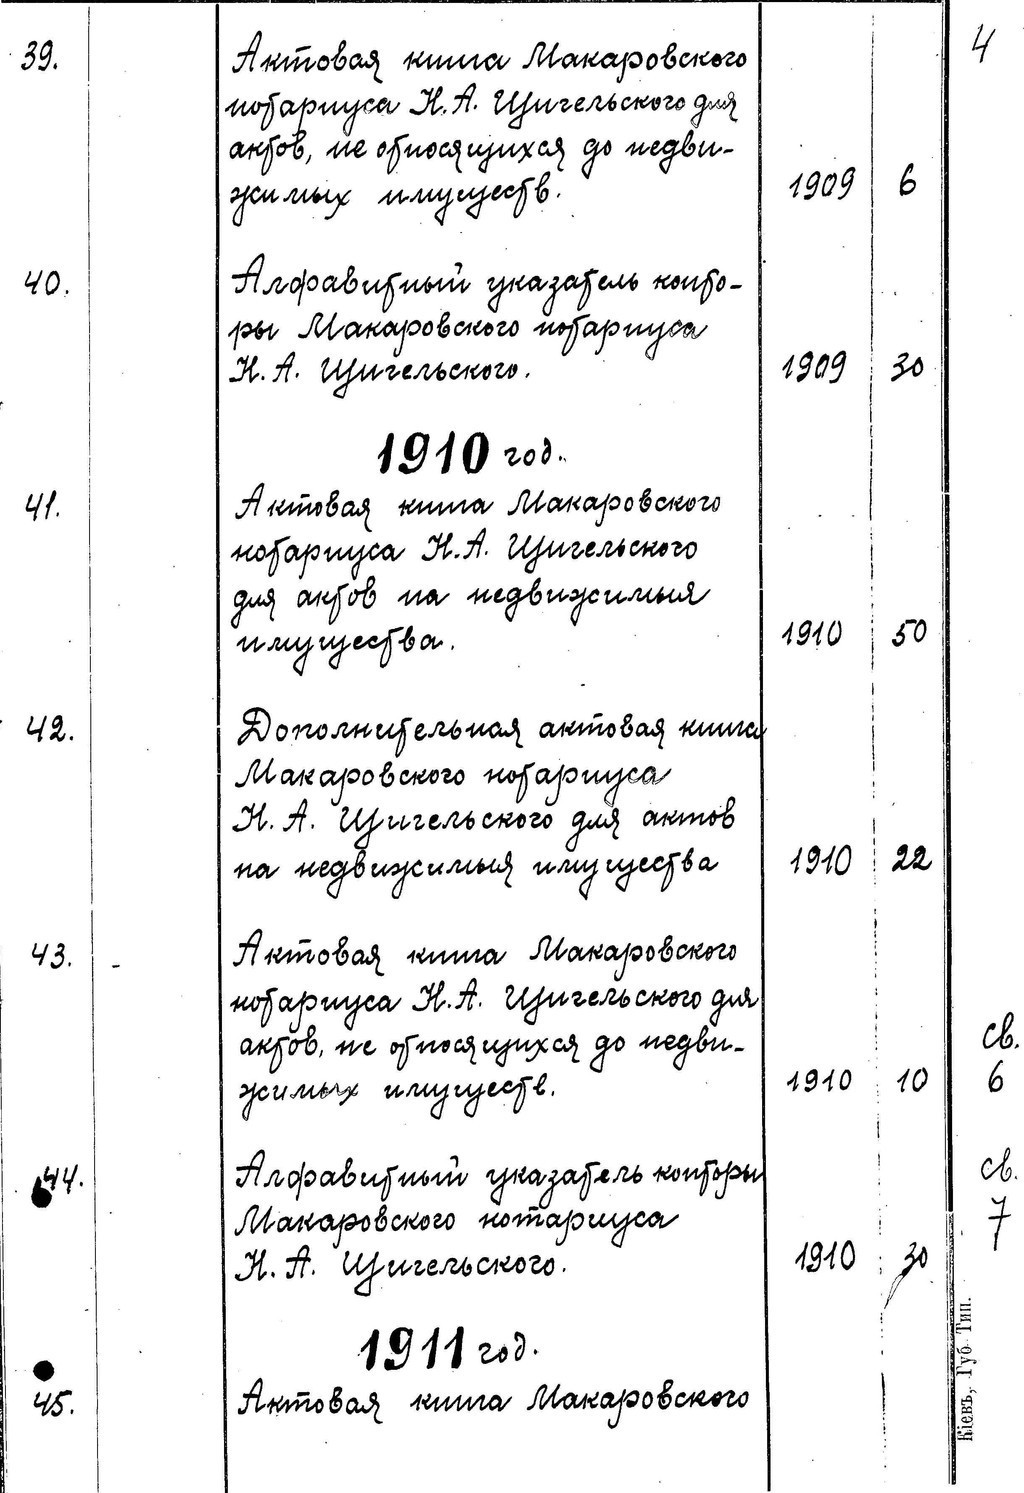 4
39. Актовая книга Макаровского
нотариуса Н. А. Щигельского для
актов, не относящихся до недви-
жимых имуществ. 1909 6
40. Алфавитный указатель конто-
ры Макаровского нотариуса
Н. А. Щигельского. 1909 30
1910 год.
41. Актовая книга Макаровского
нотариуса Н. А. Щигельского
для актов на недвижимыя
имущества. 1910 50
42. Дополнительная актовая книга
Макаровского нотариуса
Н. А. Щигельского для актов
на недвижимыя имущества 1910 22
43. Актовая книга Макаровского
нотариуса Н. А. Щигельского для
актов, не относящихся до недви-
жимых имуществ. 1910 10
св.
6
44. Алфавитный указатель конторы
Макаровского нотариуса
Н. А. Щигельского. 1910 30
св.
7
1911 год.
45. Актовая книга Макаровского
Кіевъ, Губ. Тип.